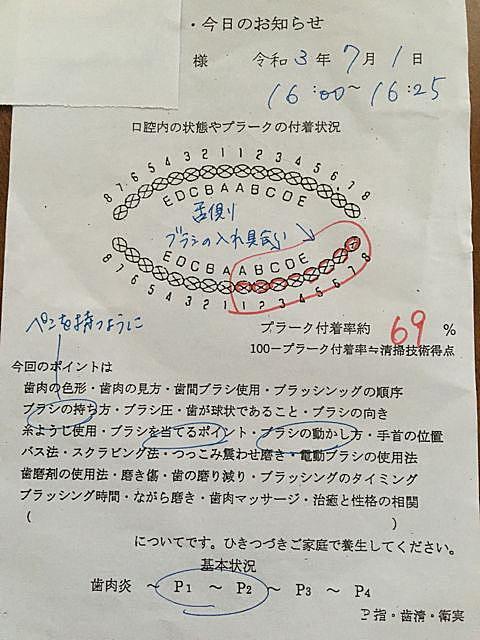 ・今日のお知らせ
様 令和3年7月1日
16:00～16:25
口腔内の状態やプラークの付着状況
8 7 6 5 4 3 2 1 1 2 3 4 5 6 7 8
E D C B A A B C D E
舌側り
ブラシの入れ具合い
E D C B A A B C D E
8 7 6 5 4 3 2 1 1 2 3 4 5 6 7 8
ペンを持つように
プラーク付着率約 69 %
100－プラーク付着率≒清掃技術得点
今回のポイントは
歯肉の色形・歯肉の見方・歯間ブラシ使用・ブラッシンッグの順序
ブラシの持ち方・ブラシ圧・歯が球状であること・ブラシの向き
糸ようじ使用・ブラシを当てるポイント・ブラシの動かし方・手首の位置
バス法・スクラビング法・つっこみ震わせ磨き・電動ブラシの使用法
歯磨剤の使用法・磨き傷・歯の磨り減り・ブラッシングのタイミング
ブラッシング時間・ながら磨き・歯肉マッサージ・治癒と性格の相関
( )
についてです。ひきつづきご家庭で養生してください。
基本状況
歯肉炎 ～ P1 ～ P2 ～ P3 ～ P4
P指・歯清・衛実